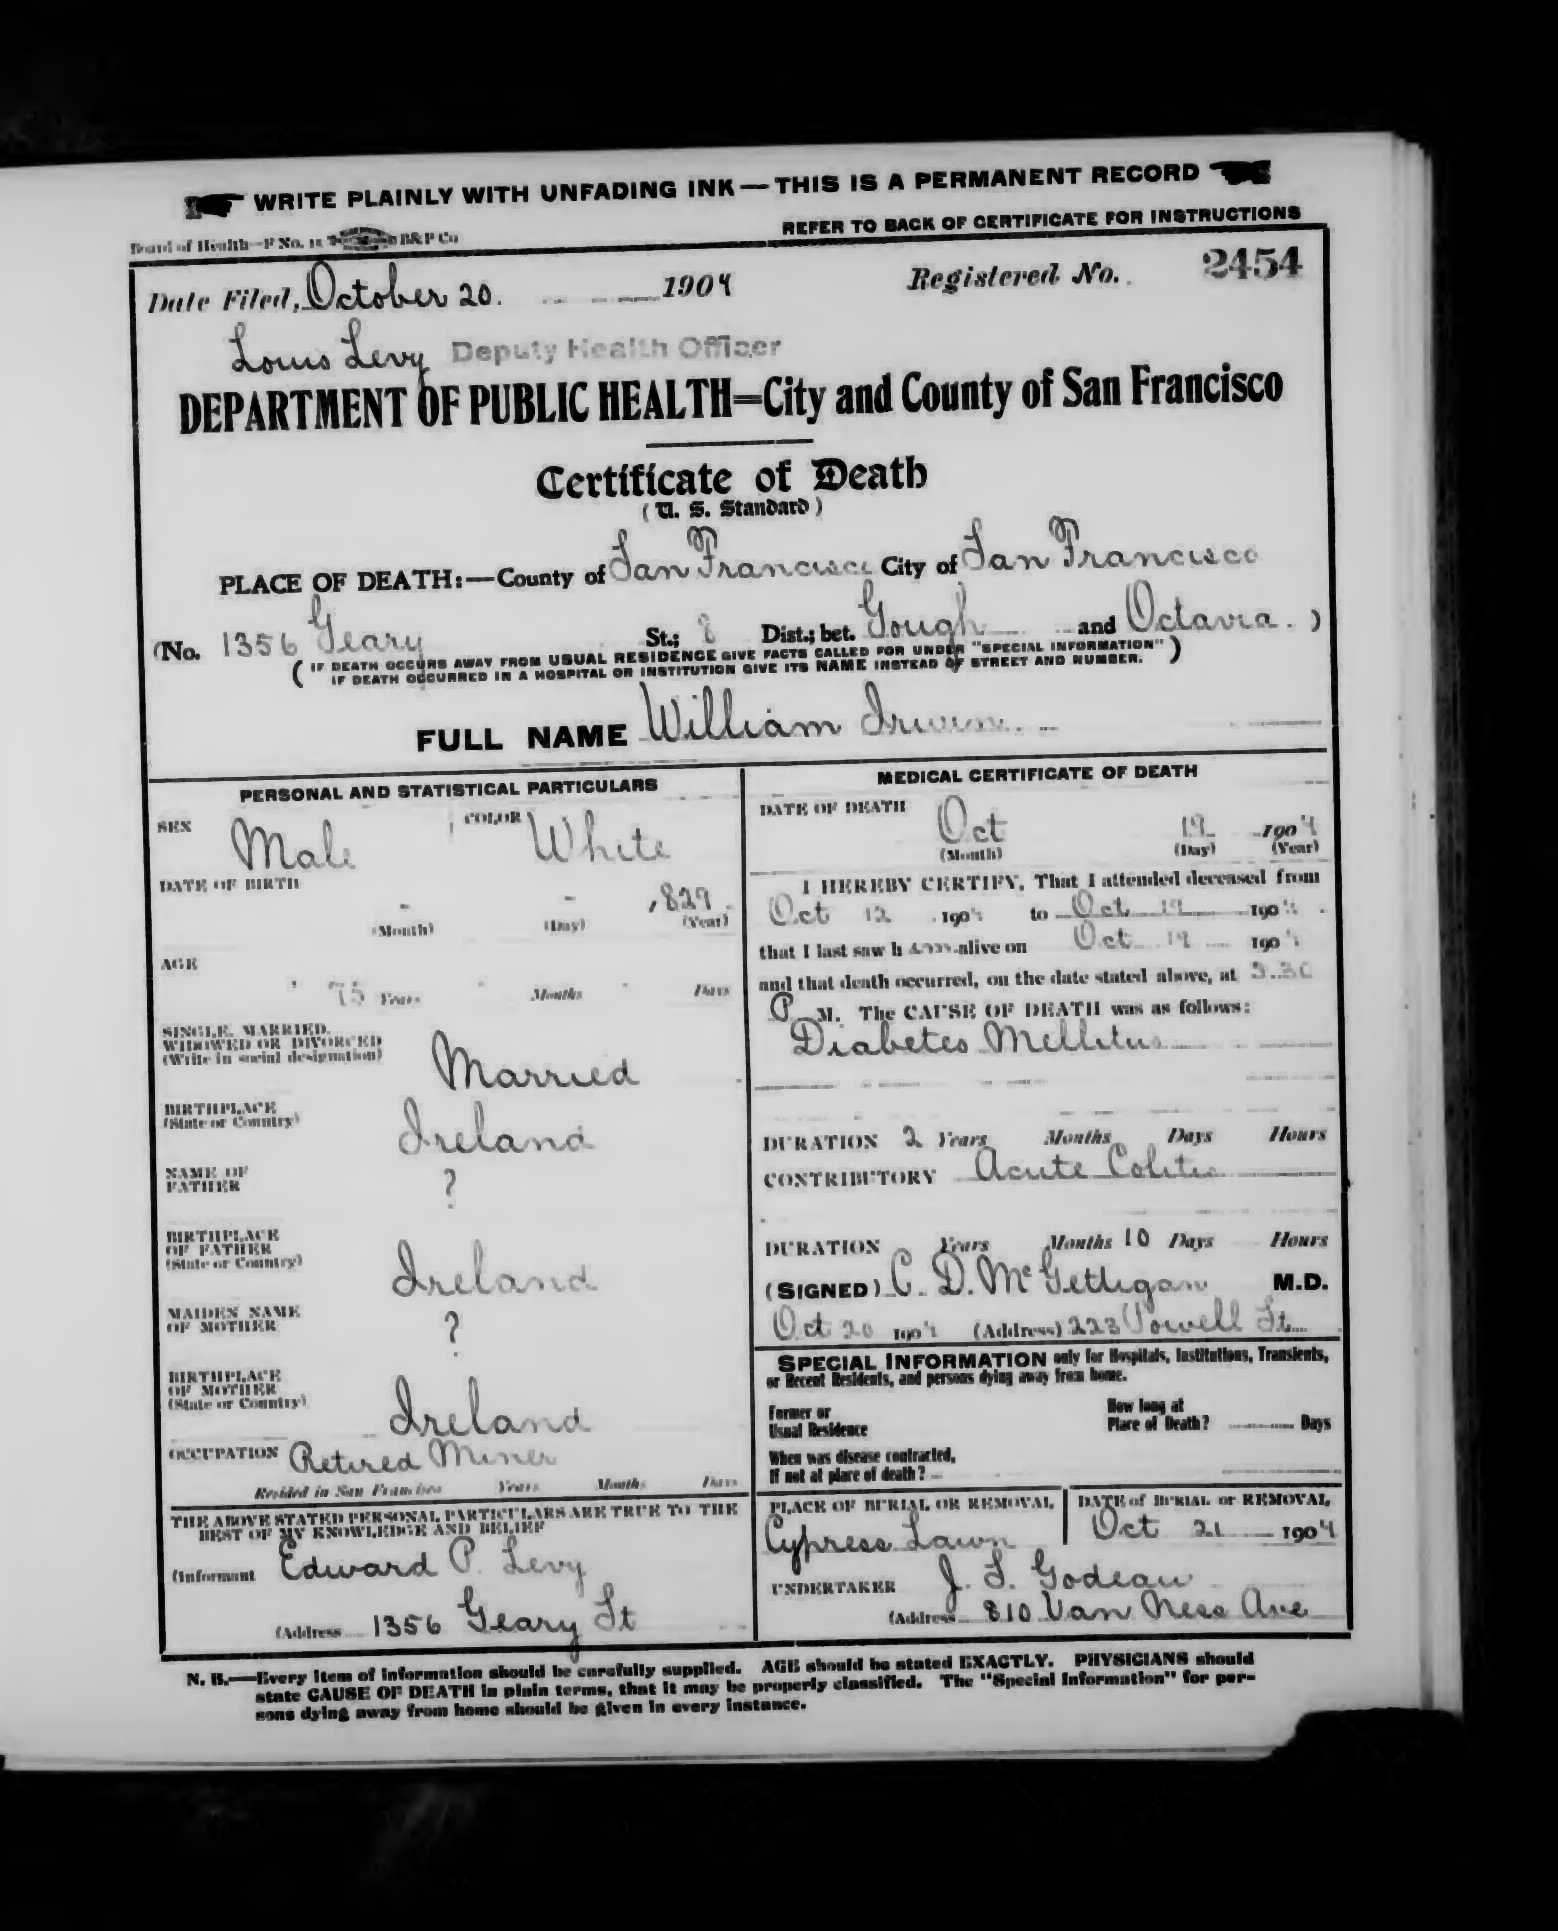 WRITE PLAINLY WITH UNFADING INK — THIS IS A PERMANENT RECORD
Board of Health—F No. 15 B&P Co
REFER TO BACK OF CERTIFICATE FOR INSTRUCTIONS
Date Filed, October 20. 1904
Registered No. 2454
Louis Levy Deputy Health Officer
DEPARTMENT OF PUBLIC HEALTH=City and County of San Francisco
Certificate of Death
(U. S. Standard)
PLACE OF DEATH:—County of San Francisco City of San Francisco
(No. 1356 Geary St.; 8 Dist.; bet. Gough and Octavia. )
( IF DEATH OCCURS AWAY FROM USUAL RESIDENCE GIVE FACTS CALLED FOR UNDER "SPECIAL INFORMATION" )
IF DEATH OCCURRED IN A HOSPITAL OR INSTITUTION GIVE ITS NAME INSTEAD OF STREET AND NUMBER.
FULL NAME William Irwin.
PERSONAL AND STATISTICAL PARTICULARS
SEX Male COLOR White
DATE OF BIRTH - - 1829
(Month) (Day) (Year)
AGE
75 Years Months Days
SINGLE, MARRIED,
WIDOWED OR DIVORCED
(Write in social designation) Married
BIRTHPLACE
(State or Country) Ireland
NAME OF
FATHER ?
BIRTHPLACE
OF FATHER
(State or Country) Ireland
MAIDEN NAME
OF MOTHER ?
BIRTHPLACE
OF MOTHER
(State or Country) Ireland
OCCUPATION Retired Miner
Resided in San Francisco Years Months Days
THE ABOVE STATED PERSONAL PARTICULARS ARE TRUE TO THE
BEST OF MY KNOWLEDGE AND BELIEF
(Informant Edward P. Levy
(Address 1356 Geary St
MEDICAL CERTIFICATE OF DEATH
DATE OF DEATH
Oct 19 1904
(Month) (Day) (Year)
I HEREBY CERTIFY, That I attended deceased from
Oct 12 1904 to Oct 19 1904
that I last saw h im alive on Oct 19 1904
and that death occurred, on the date stated above, at 3.30
P M. The CAUSE OF DEATH was as follows:
Diabetes Mellitus
DURATION 2 Years Months Days Hours
CONTRIBUTORY Acute Colitis
DURATION Years Months 10 Days Hours
(SIGNED) C. D. McGettigan M.D.
Oct 20 1904 (Address) 223 Powell St.
SPECIAL INFORMATION only for Hospitals, Institutions, Transients,
or Recent Residents, and persons dying away from home.
Former or
Usual Residence
How long at
Place of Death? Days
When was disease contracted,
If not at place of death?
PLACE OF BURIAL OR REMOVAL
Cypress Lawn
DATE of BURIAL or REMOVAL
Oct 21 1904
UNDERTAKER J. S. Godeau
(Address 810 Van Ness Ave
N. B.—Every item of information should be carefully supplied. AGE should be stated EXACTLY. PHYSICIANS should
state CAUSE OF DEATH in plain terms, that it may be properly classified. The "Special Information" for per-
sons dying away from home should be given in every instance.